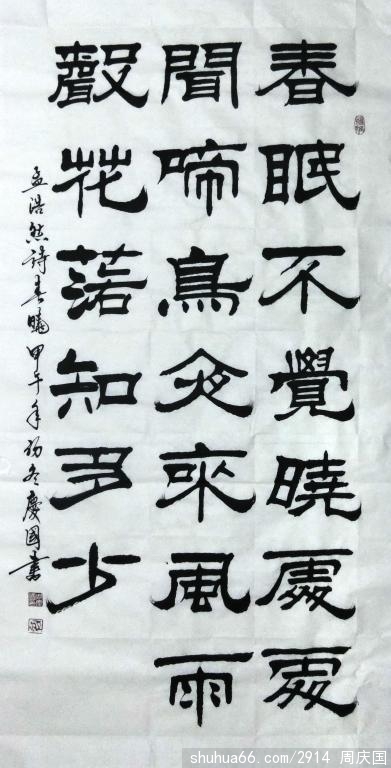 春眠不覺曉處處
聞啼鳥夜來風雨
聲花落知多少
孟浩然詩春曉甲午年初冬慶國書
shuhua66.com/2914 周庆国